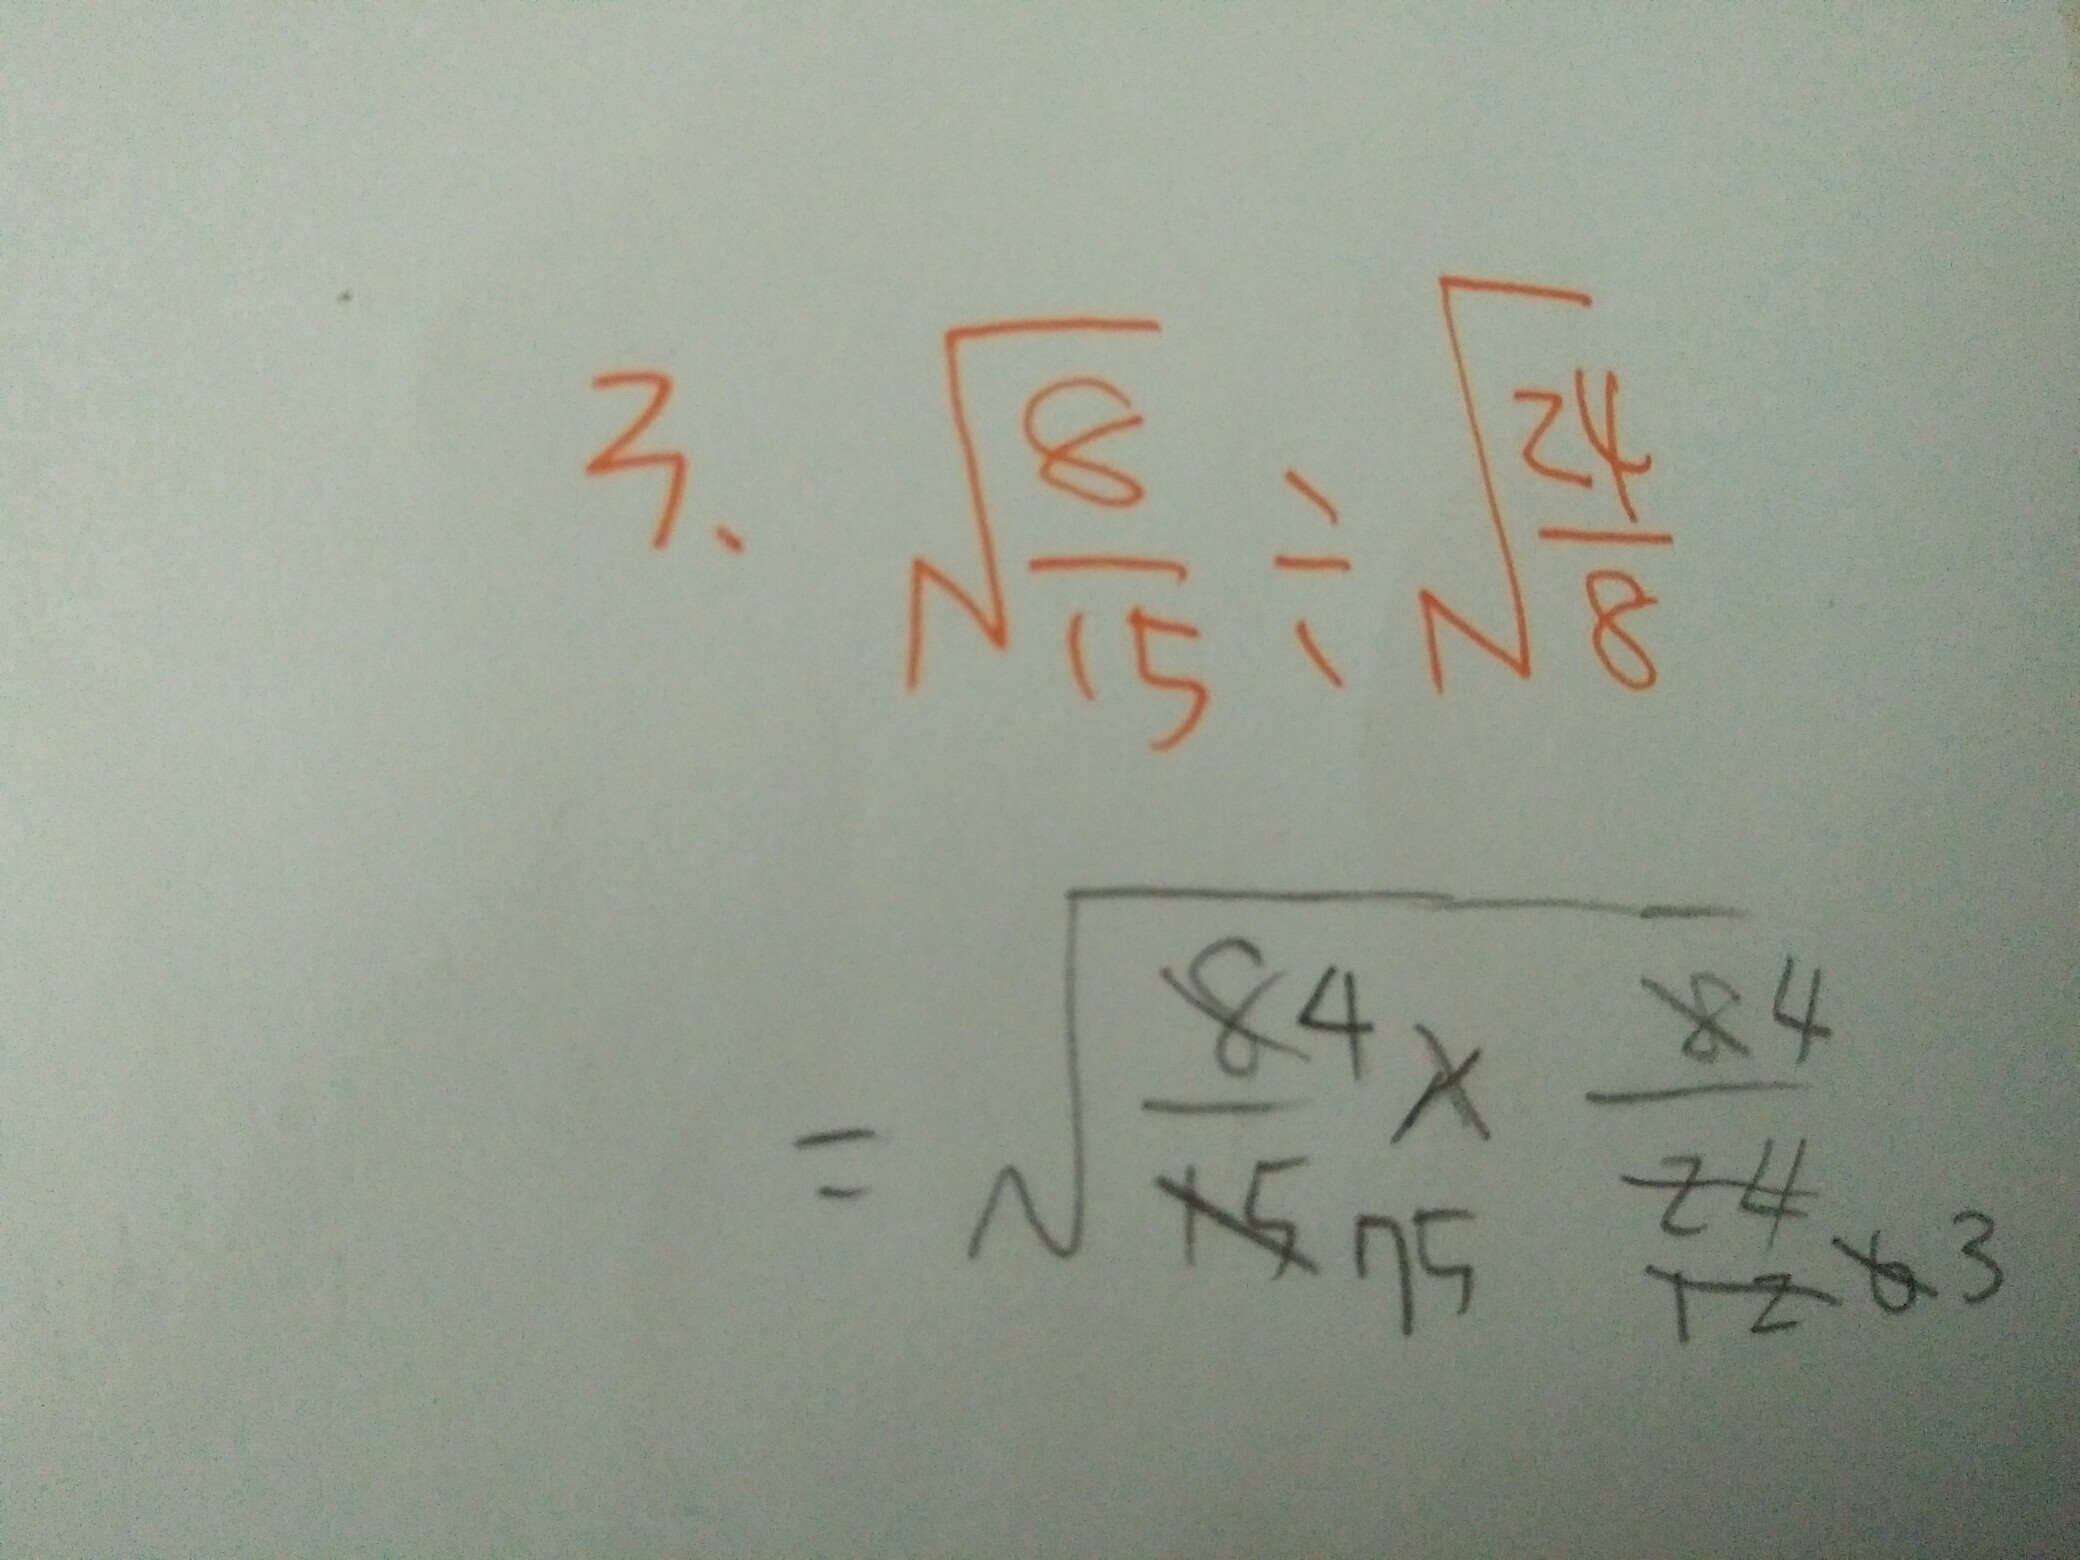 3. √(8/15) ÷ √(24/8)
= √(8 4/15 75 × 8 4/24 12 6 3)